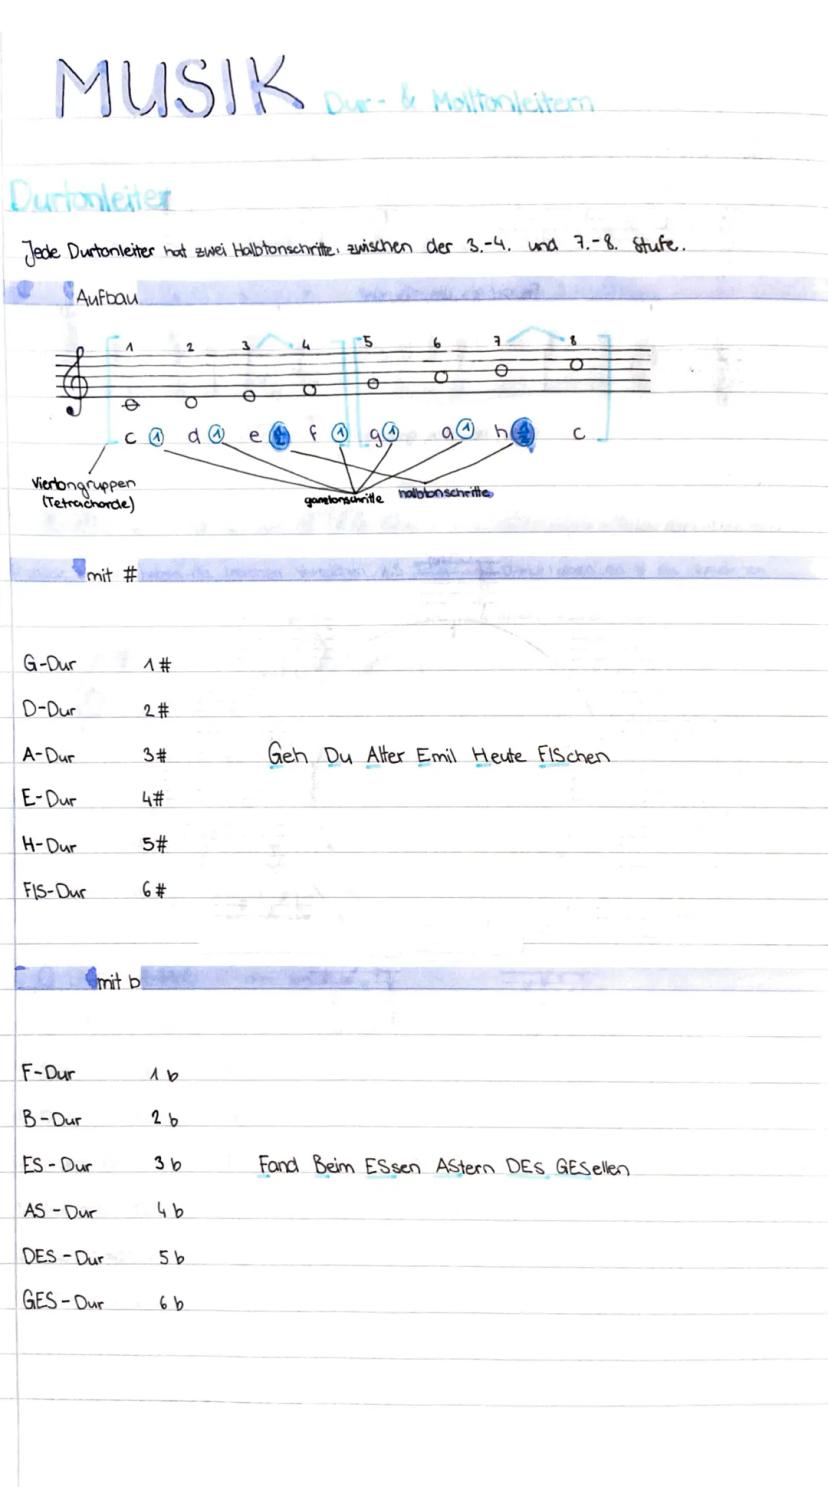 MUSIK Dur- & Molltonleitern
Durtonleiter
Jede Durtonleiter hat zwei Halbtonschritte: zwischen der 3.-4. und 7.-8. Stufe.
Aufbau
1 2 3 4 5 6 7 8
c 1 d 1 e 1/2 f 1 g 1 a 1 h 1/2 c
Viertongruppen
(Tetrachorde)
ganztonschritte halbtonschritte
mit #
G-Dur 1#
D-Dur 2#
A-Dur 3# Geh Du Alter Emil Heute FISchen
E-Dur 4#
H-Dur 5#
FIS-Dur 6#
mit b
F-Dur 1b
B-Dur 2b
ES-Dur 3b Fand Beim ESsen AStern DES GESellen
AS-Dur 4b
DES-Dur 5b
GES-Dur 6b